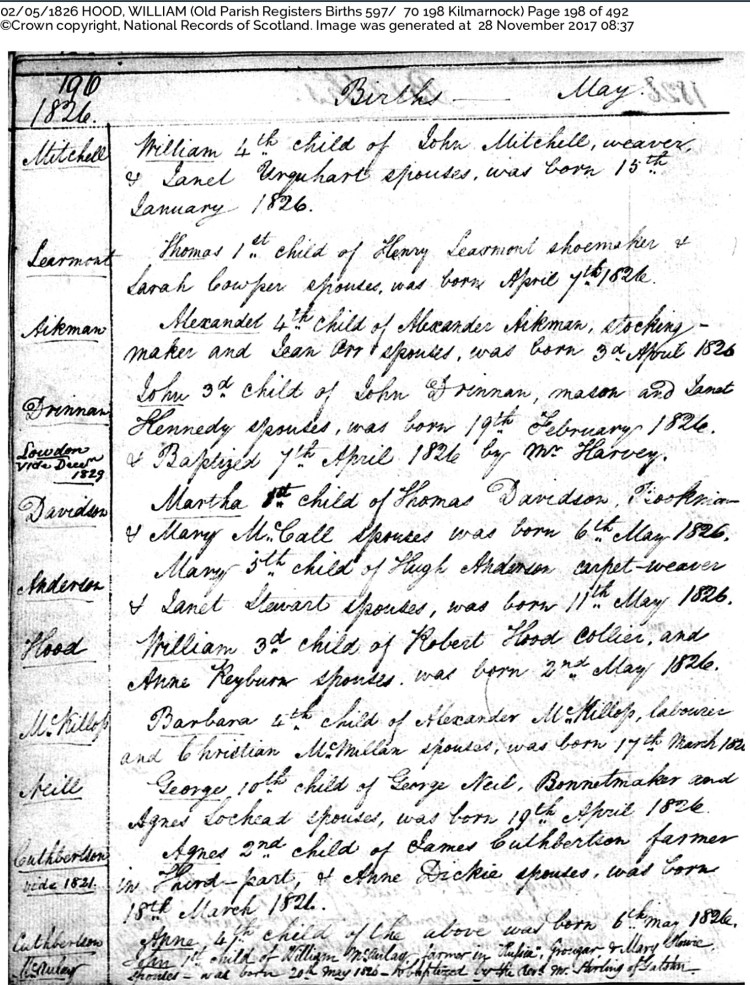 02/05/1826 HOOD, WILLIAM (Old Parish Registers Births 597/ 70 198 Kilmarnock) Page 198 of 492
©Crown copyright, National Records of Scotland. Image was generated at 28 November 2017 08:37
190
1826.
Births May.
Mitchell William 4th child of John Mitchell, weaver,
& Janet Urquhart spouses, was born 15th
January 1826.
Learmont Thomas 1st child of Henry Learmont shoemaker &
Sarah Cowper spouses, was born April 7th 1826.
Aikman Alexander 4th child of Alexander Aikman, stocking-
maker and Jean Orr spouses, was born 3d April 1826
Drinnan John 3d child of John Drinnan, mason and Janet
Kennedy spouses, was born 19th February 1826.
Lowdon & Baptized 7th April 1826 by Mr Harvey.
vide Decr
1829
Davidson Martha 1st child of Thomas Davidson,
& Mary McCall spouses was born 6th May 1826.
Anderson Mary 5th child of Hugh Anderson carpet-weaver
& Janet Stewart spouses, was born 11th May 1826.
Hood William 3d child of Robert Hood Collier, and
Anne Reyburn spouses. was born 2nd May 1826.
McKillop Barbara 4th child of Alexander McKillop, labourer
and Christian McMillan spouses, was born 17th March 182
Neill George, 10th child of George Neil, Bonnetmaker and
Agnes Lochead spouses, was born 19th April 1826.
Cuthbertson Agnes 2nd child of James Cuthbertson farmer
vide 1821. in Third-part, & Anne Dickie spouses, was born
18th March 1821.
Cuthbertson Anne 4th child of the above was born 6th May 1826.
McAulay 1st child of William McAulay, farmer in Grougar & Mary Howie
spouses - was born 20th May 1826 - & baptized by the Revd Mr Stirling of Galston